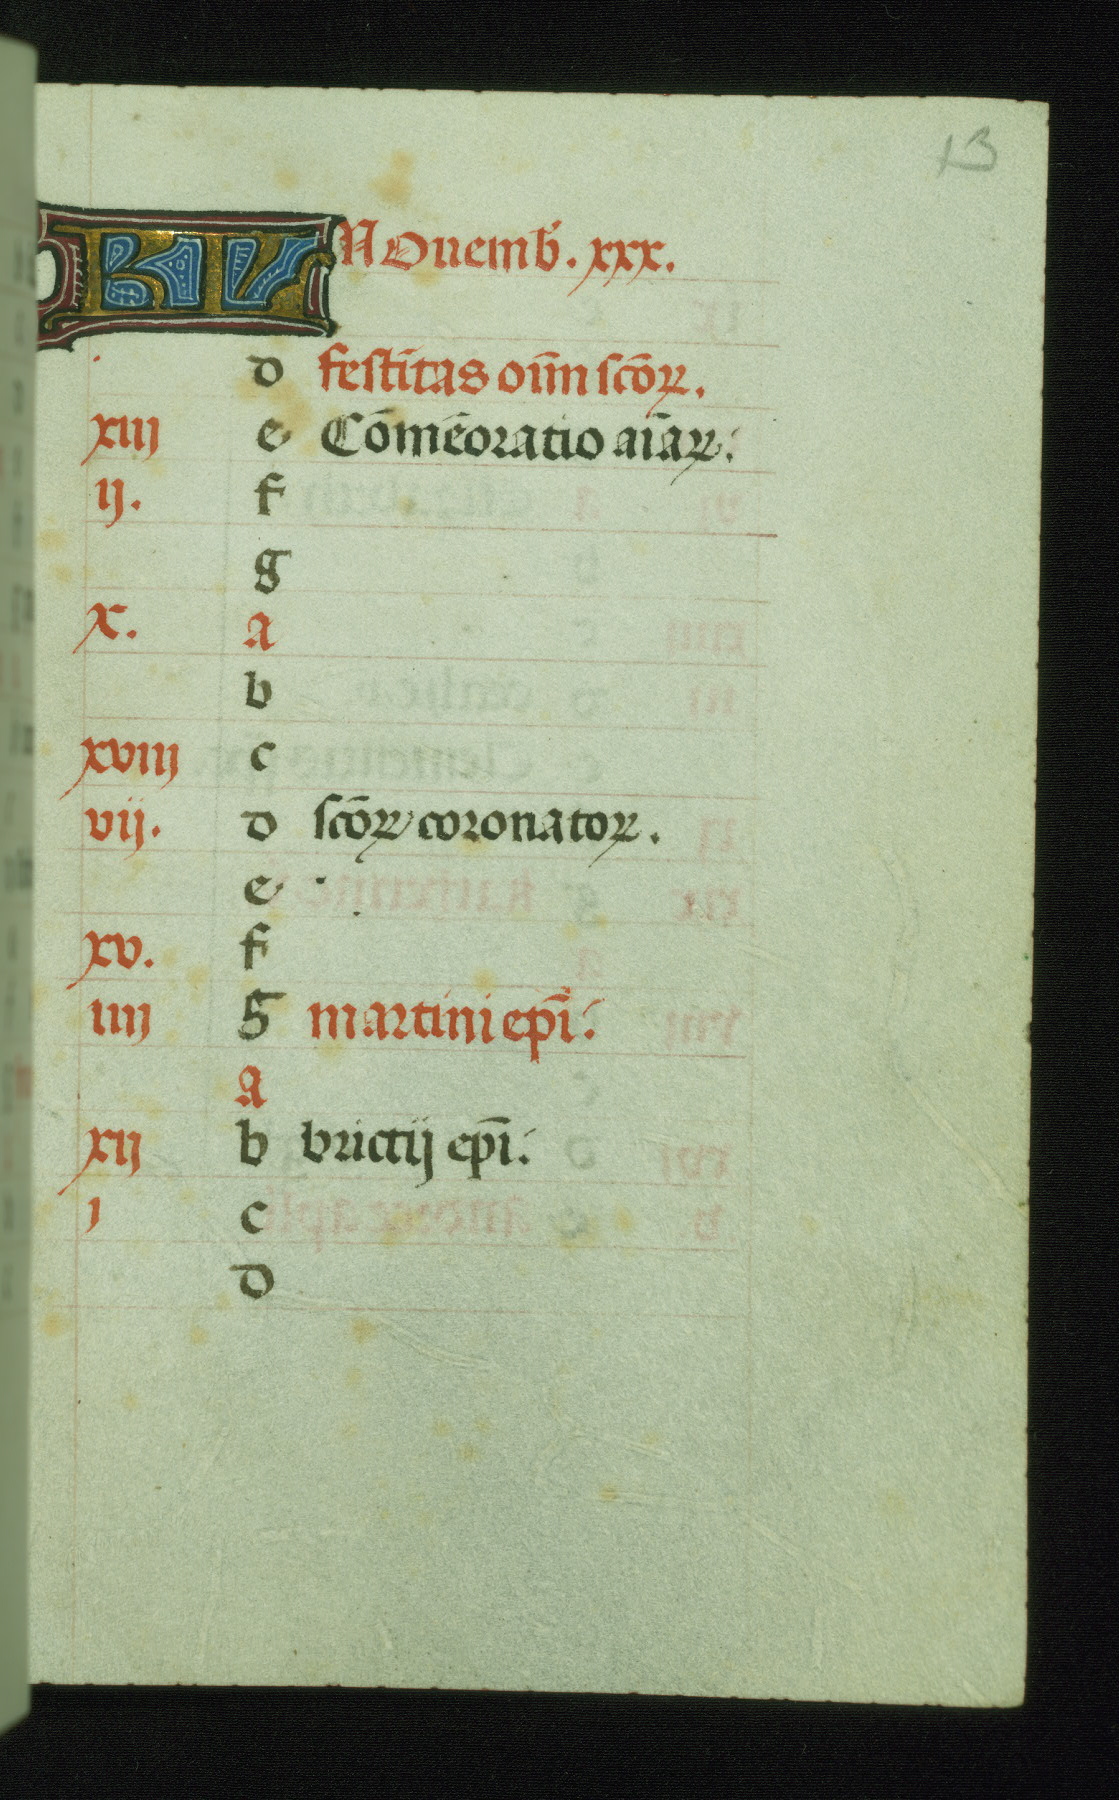 13
KL Nouemb̄. xxx.
d festītas oīm scōꝝ.
xiii e Cōmēoratio aīaꝝ.
ij. f
g
x. a
b
xviij c
vij. d scōꝝ coronatoꝝ.
e
xv. f
iiij g martini ep̄i.
a
xij b brictij ep̄i.
i c
d